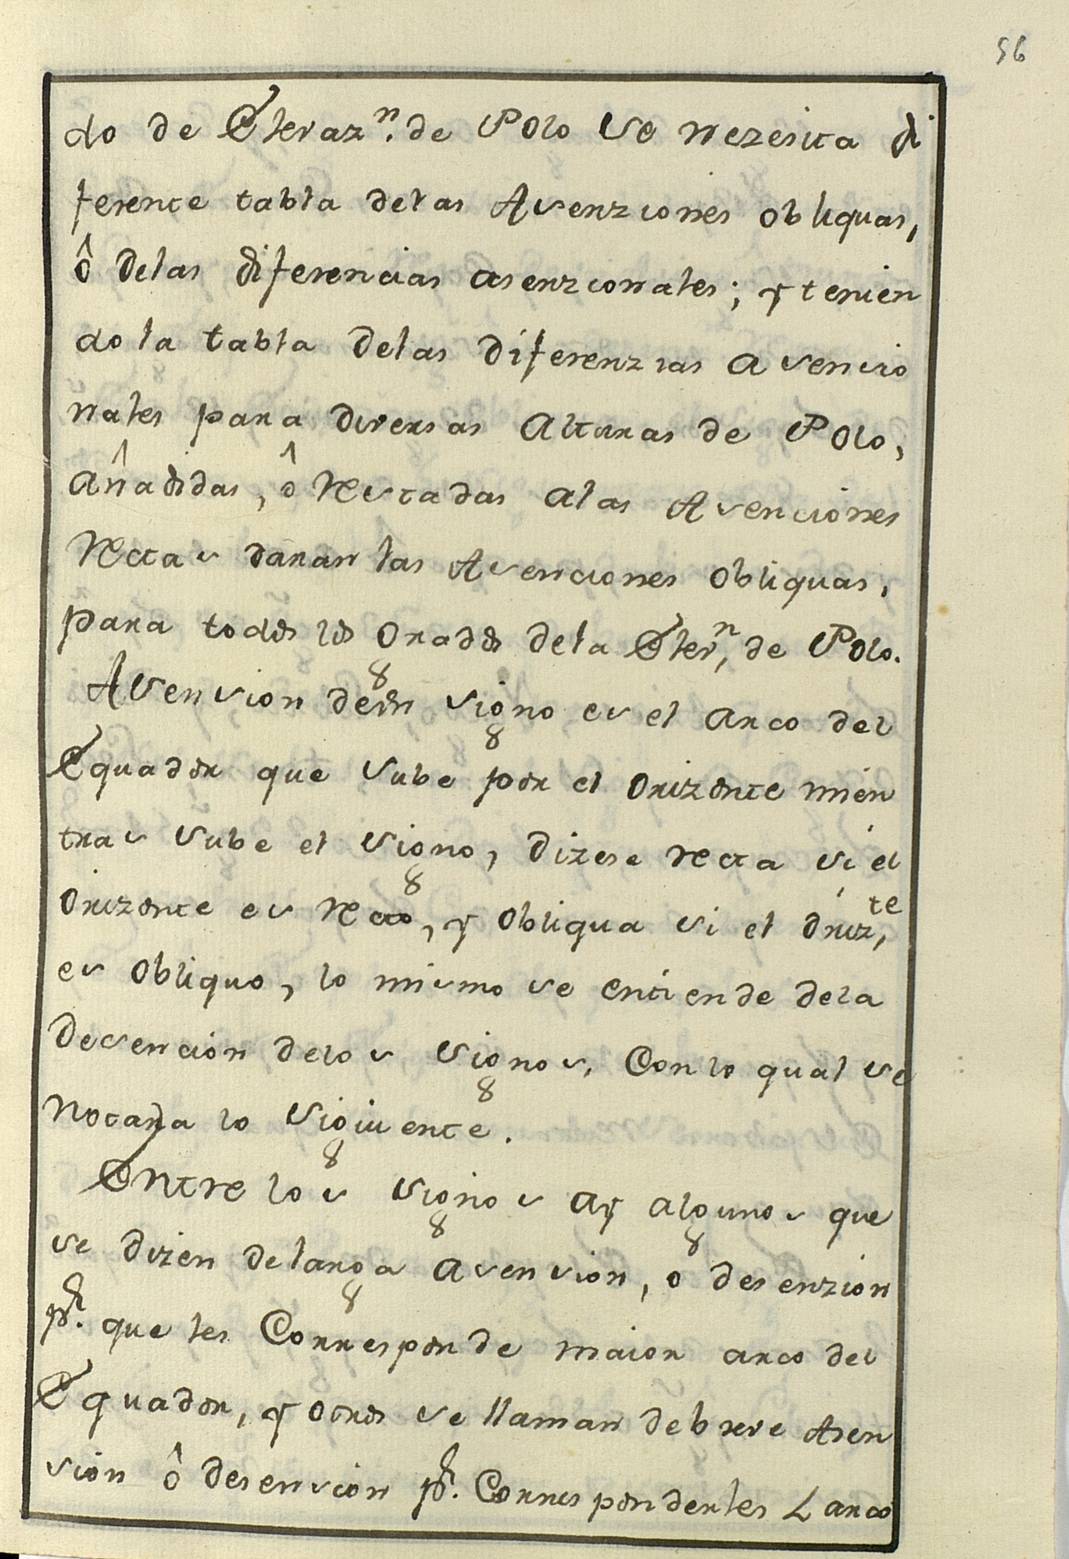 56
do de Elevaz.n de Polo se nezesita di
ferente tabla delas Asenziones obliquas,
ô delas diferencias asenzionales; y tenien
do la tabla delas diferenzias asencio
nales para diversas alturas de Polo,
añadidas, ô restadas alas Asenciones
rectas daran las Asenciones obliquas,
para todos los Grados dela Elev.n de Polo.
Asension deun signo es el arco del
Equador que sube por el orizonte mien
tras sube el signo, dizese recta si el
orizonte es recto, y obliqua si el oriz.te
es obliquo, lo mismo se entiende dela
Desencion delos signos, Con lo qual se
notara lo siguiente.
Entre los signos ay algunos que
se dizen delarga asension, o desenzion
pr. que les Corresponde maior arco del
Equador, y otros se llaman debreve Asen
sion ô desension pr. Correspondenles L arco